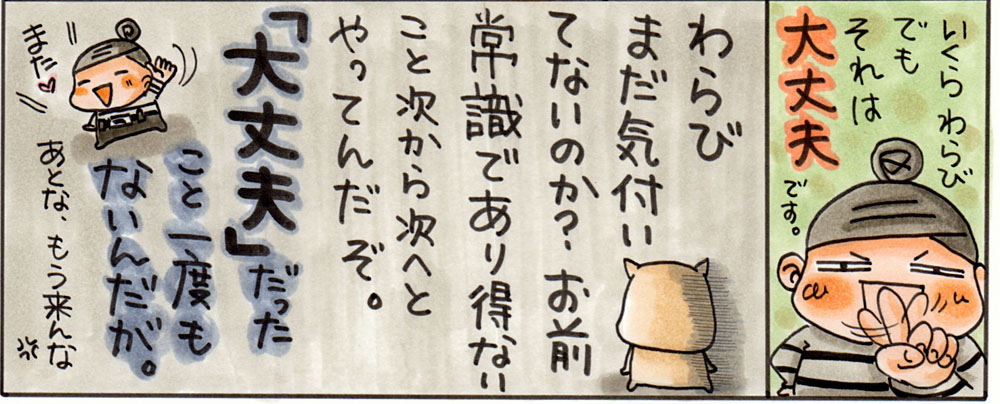 いくら わらび
でも
それは
大丈夫
です。
わらび
まだ気付い
てないのか?お前
常識であり得ない
こと次から次へと
やってんだ ぞ。
「大丈夫」だった
こと 一度も
ないんだが。
また♡
あとな、もう来んな